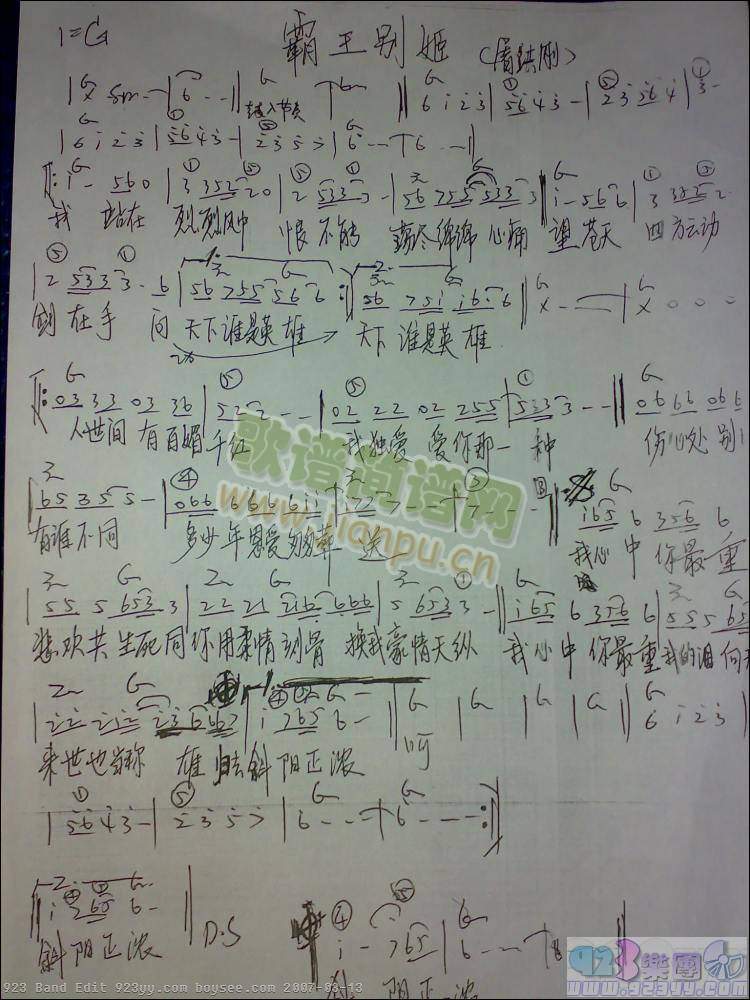 1=G 霸王别姬 (屠洪刚)
6 i 2 3 | 56 4 3 - | 2 3 56 4 | 3 -
| 6 i 2 3 | 56 4 3 - | 2 3 5 7 | 6 - - | 6 - - ||
i - 5 6 0 | 3 352 20 | 2 533 3 - | 56 755 533 3 || i - 56 6 | 3 352 2
我 站在 烈烈风中 恨不能 荡尽绵绵心痛 望苍天 四方云动
| 2 533 3 - 6 | 56 755 56 6 :|| 56 751 i 6 · 6 || X - - - | X 0 0 0
剑在手 问天下谁是英雄 天下谁是英雄
||: 03 33 03 36 | 52 2 - - | 02 22 02 255 | 533 3 - - || 06 66 066
人世间有百媚千红 我独爱爱你那一种 伤心处别
| 65 3 5 5 - | 066 66 66 ii | i 7 7 - - | 7 - - - ||
有谁不同 多少年恩爱匆匆葬送
i65 6 356 6
我心中你最重
歌谱简谱网
www.jianpu.cn
| 55 5 653 3 | 22 21 216 666 | 5 653 3 - || i65 6 356 6 | 55 5 65
悲欢共生死同你用柔情刻骨 换我豪情天纵 我心中你最重我的泪向
| 22 212 23 6663 | i 765 6 - || G | G | G | G || 6 i 2 3
来世也当称雄归去斜阳正浓 呵
| 56 4 3 - | 2 3 5 7 | 6 - - - | 6 - - - :||
i 765 6 - || D.S i - 765 | 6 - - -
斜阳正浓 斜阳正浓
923樂團
www.923yy.com
923 Band Edit 923yy.com boysee.com 2007-03-13